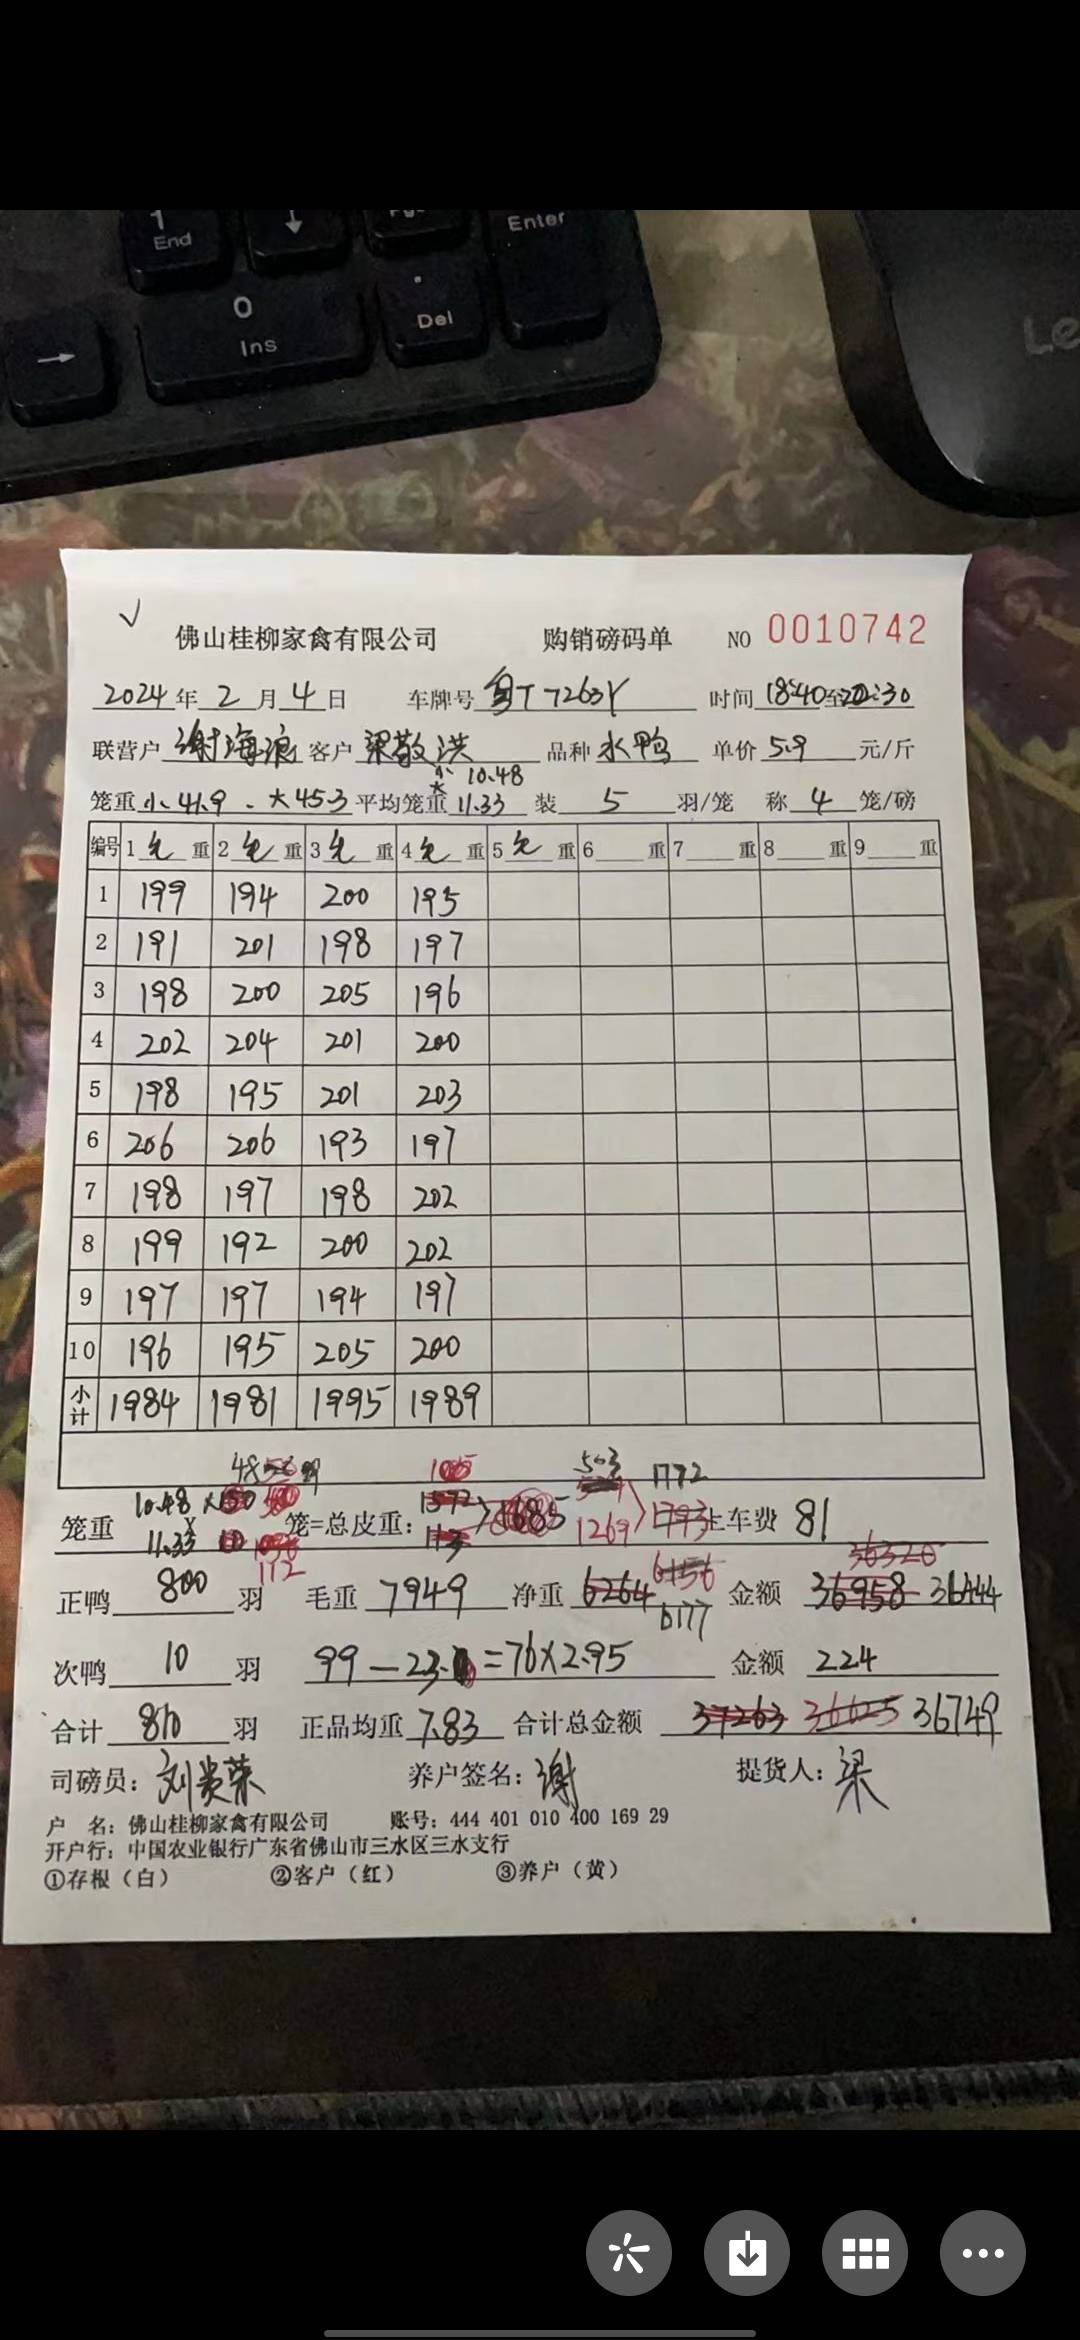 1
End
↓
Enter
0
Ins
.
Del
→
Le
✓
佛山桂柳家禽有限公司 购销磅码单 NO 0010742
2024年2月4日 车牌号 粤T7263Y 时间 18:40至20:30
联营户 谢海浪 客户 梁敬洪 品种 水鸭 单价 5.9 元/斤
小 10.48
笼重 小41.9、大45.3 平均笼重 大 11.33 装 5 羽/笼 称 4 笼/磅
编号 1 毛 重 2 毛 重 3 毛 重 4 毛 重 5 毛 重 6 重 7 重 8 重 9 重
1 199 194 200 195
2 191 201 198 197
3 198 200 205 196
4 202 204 201 200
5 198 195 201 203
6 206 206 193 197
7 198 197 198 202
8 199 192 200 202
9 197 197 194 197
10 196 195 205 200
小计 1984 1981 1995 1989
48 503 1772
笼重 10.48 × 150 笼=总皮重: 1572 1685 1269 1793 上车费 81
11.33 × 10 112 113
6156 36320
正鸭 800 羽 毛重 7949 净重 6264 6177 金额 36958 36444
次鸭 10 羽 99-23. =76×2.95 金额 224
合计 810 羽 正品均重 7.83 合计总金额 37263 36625 36749
司磅员: 刘贵荣 养户签名: 谢 提货人: 梁
户 名: 佛山桂柳家禽有限公司 账号: 444 401 010 400 169 29
开户行: 中国农业银行广东省佛山市三水区三水支行
①存根(白) ②客户(红) ③养户(黄)